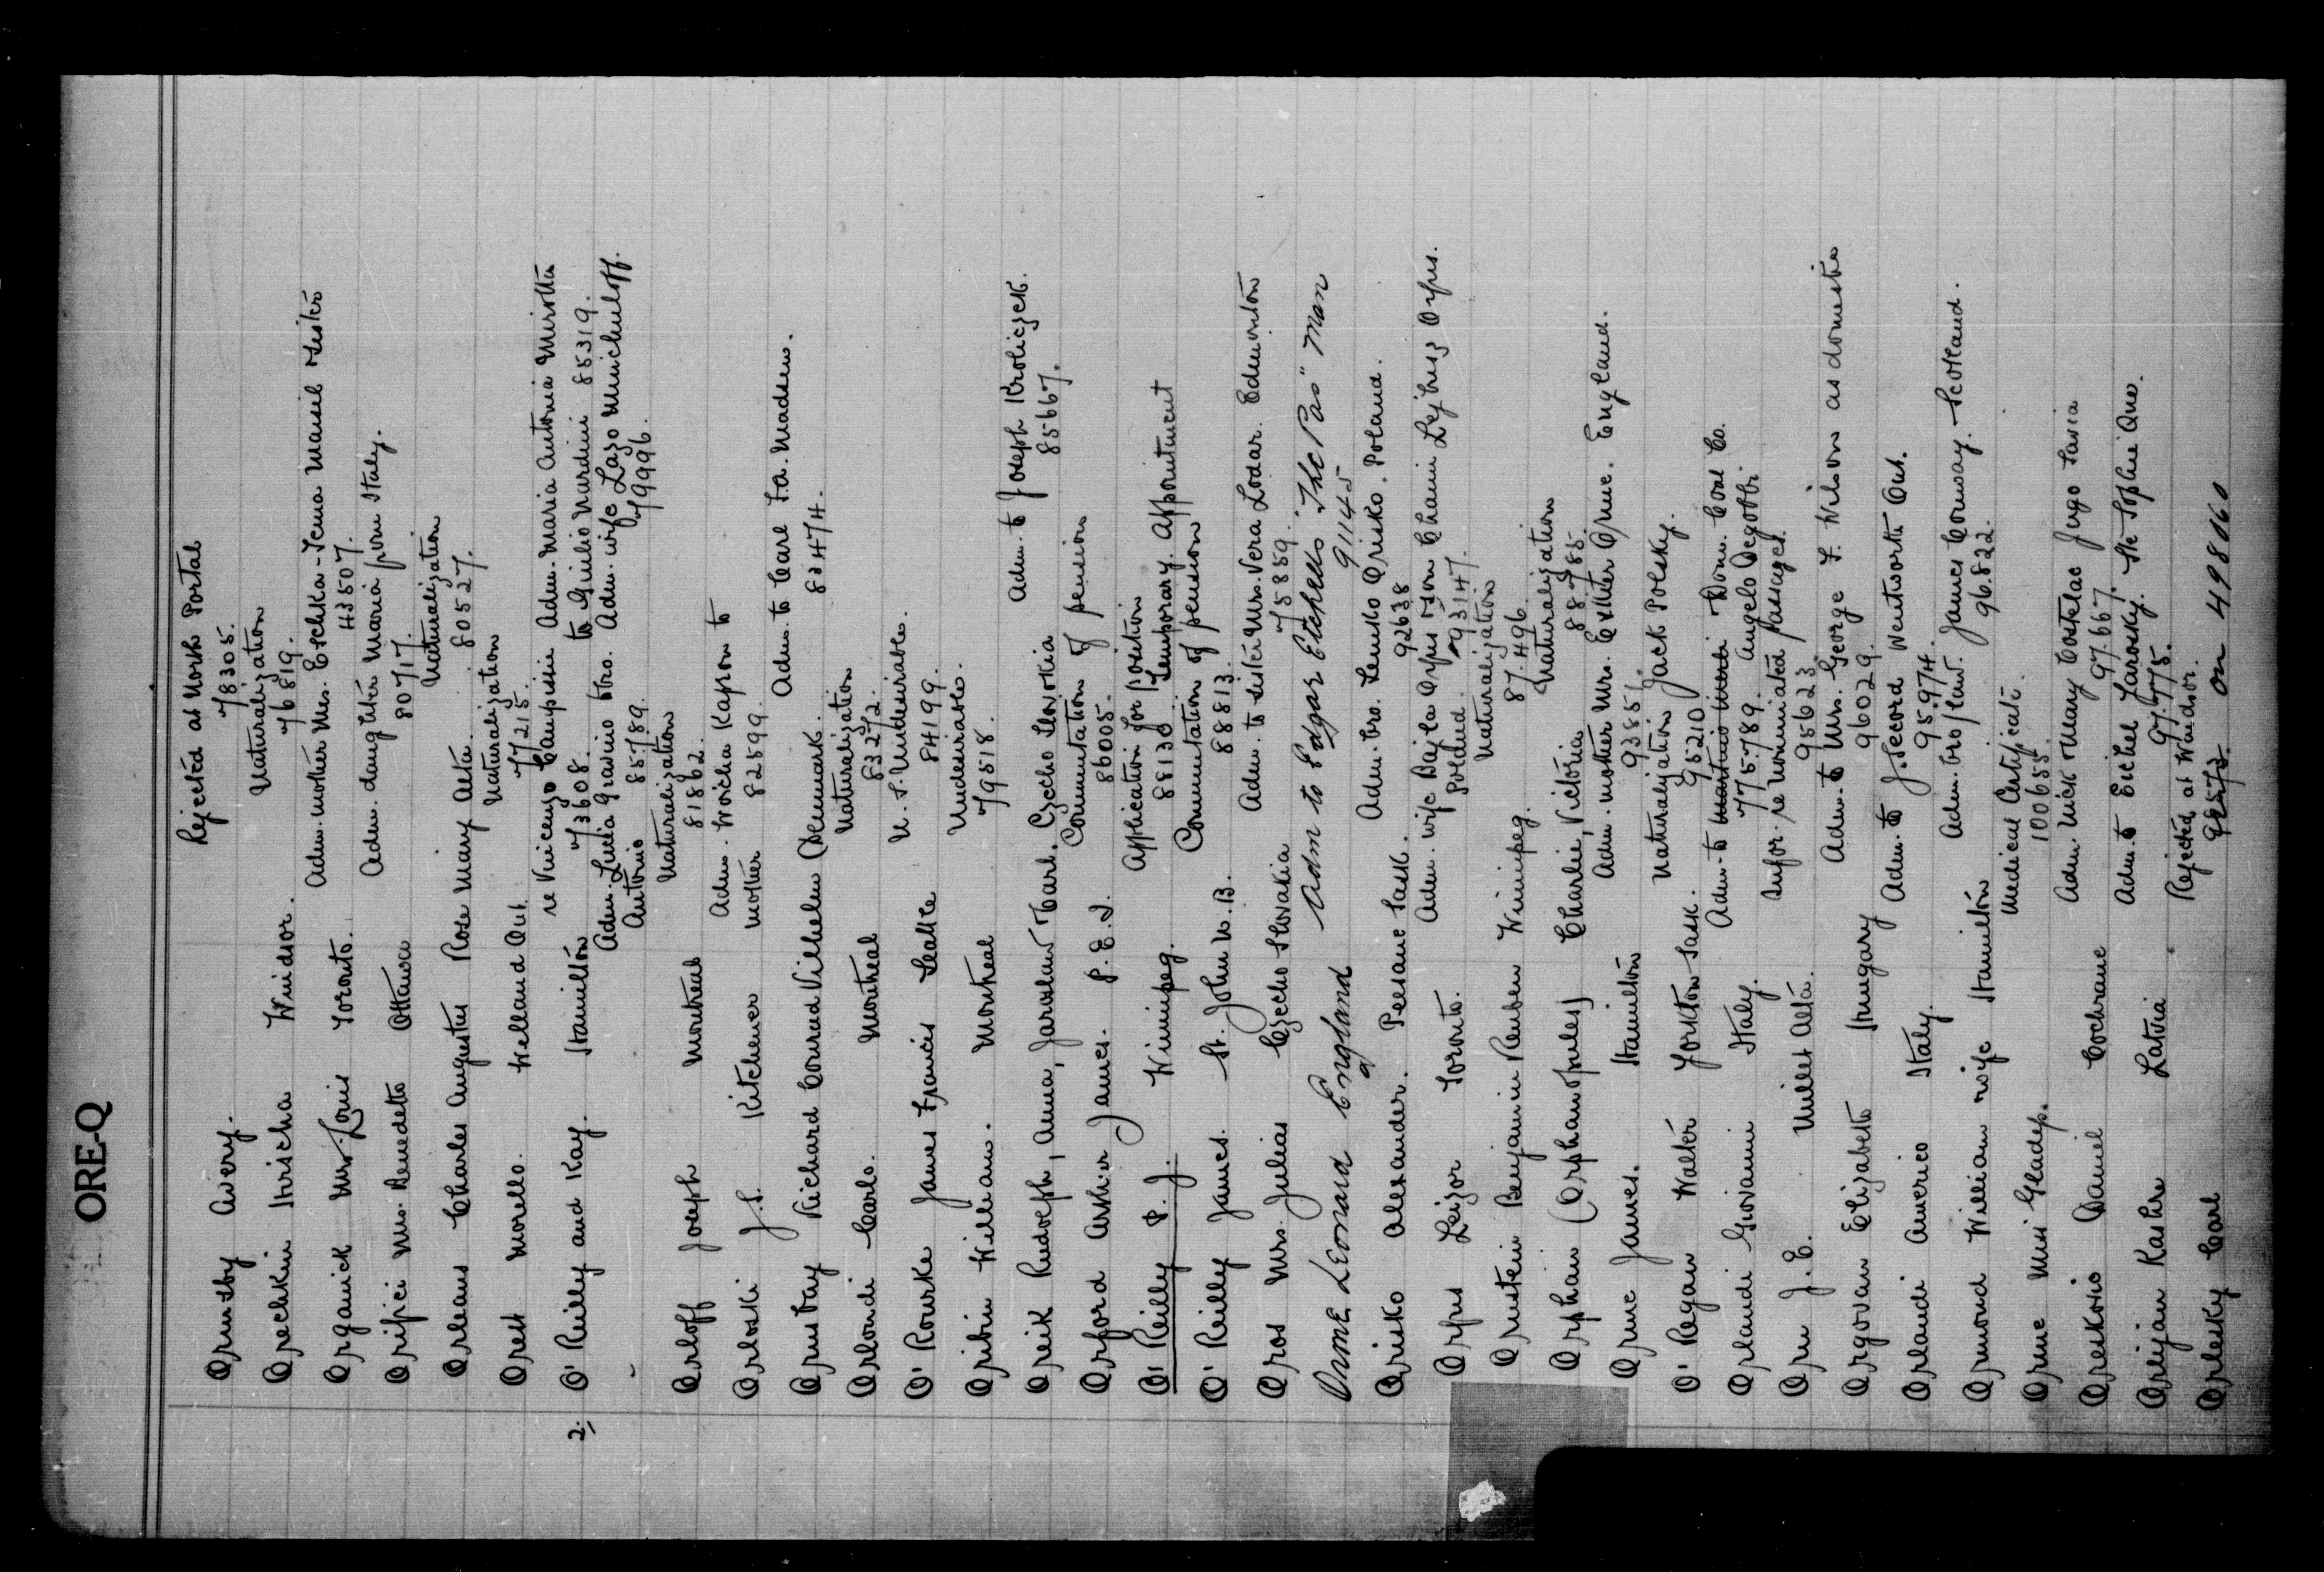 ORE-Q
Rejected at North Portal
Ormsby Avery. 78305.
Naturalization
Orechkin Hrischa Windsor. 76819.
Adm. mother Mrs. Etchka-Tema Manil sister
Organick Mrs. Louis Toronto. 43507.
Adm. daughter Maria from Italy.
Orifici Mrs. Benedetto Ottawa 80717.
Naturalization
Orleans Charles Augustus Rose Mary Alta. 80527.
Naturalization
Orest Morello. Welland Ont. 77215.
re Vincenzo Campisi Adm. Maria Antonia Mirotta
2. O'Reilly and Kay. Hamilton 73608. to Giulio Nardini 85319.
Adm. Lucia Gravino Adm. wife Lazo Minchuloff.
Antonio 85789. 79996.
Naturalization
Orloff Joseph Montreal 81862.
Adm. Woicha Kapron to
Orloski J.S. Kitchener mother 82599.
Adm. to Carl F.A. Madsen.
Orustay Richard Conrad Vilhelm (Denmark. 83474.
Naturalization
Orlondi Carlo. Montreal 83272.
U.S. Undesirables.
O'Rourke James Francis Seattle 84199.
Undesirables.
Oribin William. Montreal 79518.
Adm. to Joseph Kroliczek.
Oreik Rudolph, Anna, Jaroslav Karl. Czecho Slovakia 85667.
Commutation of pension
Orford Arthur James. P.E.I. 86005.
Application for position
O'Reilly P.J. Winnipeg. 88130 Temporary Appointment
Commutation of pension
O'Reilly James. St. John N.B. 88813.
Adm. to sister Mrs. Vera Lodar. Edmonton
Oros Mrs. Julias Czecho Slovakia 75859.
Orme Leonard England Adm to Edgar Etchells "The Pas" Man
91145
Adm. bro. Lemko Orisko. Poland.
Orisko Alexander. Peesane Sask. 92638
Adm. wife Bajla Orfus son Chaim Lejbus Orfus.
Orfus Leizor Toronto. Poland. 93147.
Naturalization
Orenstein Benjamin Reuben Winnipeg. 87.496.
Naturalization
Orphan (Orphanopules) Charlie, Victoria 88785.
Adm. mother Mrs. Esther Orme. England.
Orme James. Hamilton 93851.
Naturalization Jack Polsky.
O'Regan Walter Yorkton Sask. 95210
Adm. to Dom. Coal Co.
Orlandi Giovanni Italy. 775.789. Angelo Degobbi.
Infor. re nominated passages.
Orm J.E. Millet Alta. 95623.
Adm. to Mrs. George F. Wilson as domestic
Orgovan Elizabeth Hungary 96029.
Adm. to J. Secord Wentworth Ont.
Orlandi Americo Italy. 95.974.
Adm. bro/law. James Conway. Scotland.
Ormond William wife Hamilton 96.822.
Medical Certificate.
Orme Miss Gladys. 100655.
Adm. Nick & Mary Costelac Jugo Slavia
Oreskovic Daniel Cochrane 97.667.
Adm. to Eichel Yarosky. Ste Sophie Que.
Orlijan Kashr Latvia 97.775.
Rejected at Windsor.
Orlesky Carl on 498060